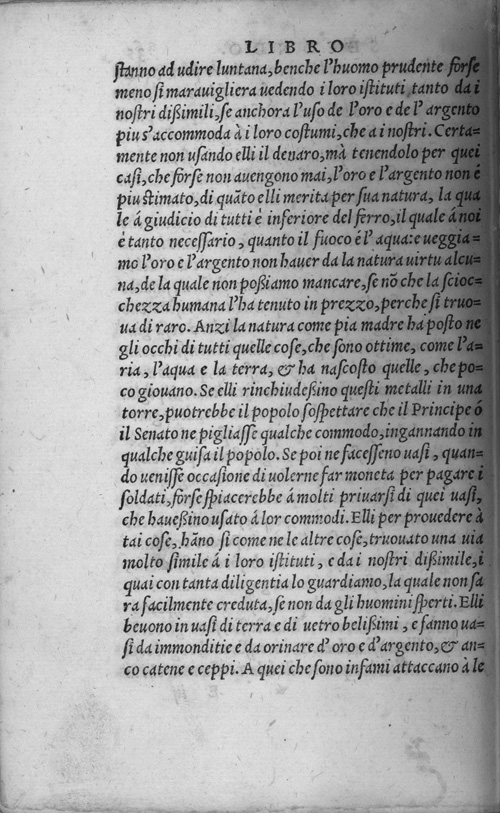 LIBRO
stanno ad udire luntana, benche l'huomo prudente forse
meno si marauigliera uedendo i loro istituti tanto da i
nostri dißimili, se anchora l'uso de l'oro e de l'argento
piu s'accommoda à i loro costumi, che a i nostri. Certa=
mente non usando elli il denaro, mà tenendolo per quei
casi, che forse non auengono mai, l'oro e l'argento non é
piu stimato, di quãto elli merita per sua natura, la qua
le á giudicio di tutti é inferiore del ferro, il quale á noi
é tanto necessario, quanto il fuoco é l'aqua: e ueggia=
mo l'oro e l'argento non hauer da la natura uirtu alcu=
na, de la quale non poßiamo mancare, se nõ che la scioc=
chezza humana l'ha tenuto in prezzo, perche si truo=
ua di raro. Anzi la natura come pia madre ha posto ne
gli occhi di tutti quelle cose, che sono ottime, come l'a=
ria, l'acqua e la terra, & ha nascosto quelle, che po=
co giouano. Se elli rinchiudeßino questi metalli in una
torre, puotrebbe il popolo sospettare che il Principe ó
il Senato ne pigliasse qualche commodo, ingannando in
qualche guisa il popolo. Se poi ne facesseno uasi, quan=
do uenisse occasione di uolerne far moneta per pagare i
soldati, forse spiacerebbe á molti priuarsi di quei uasi,
che haueßino usato á lor commodi. Elli per prouedere à
tai cose, hãno si come ne le altre cose, truouato una uia
molto simile á i loro istituti, e da i nostri dißimile, i
quai con tanta diligentia lo guardiamo, la quale non sa
ra facilmente creduta, se non da gli huomini sperti. Elli
beuono in uasi di terra e di uetro belißimi, e fanno ua=
si da immonditie e da orinare d'oro e d'argento, & an=
co catene e ceppi. A quei che sono infami attaccano à le